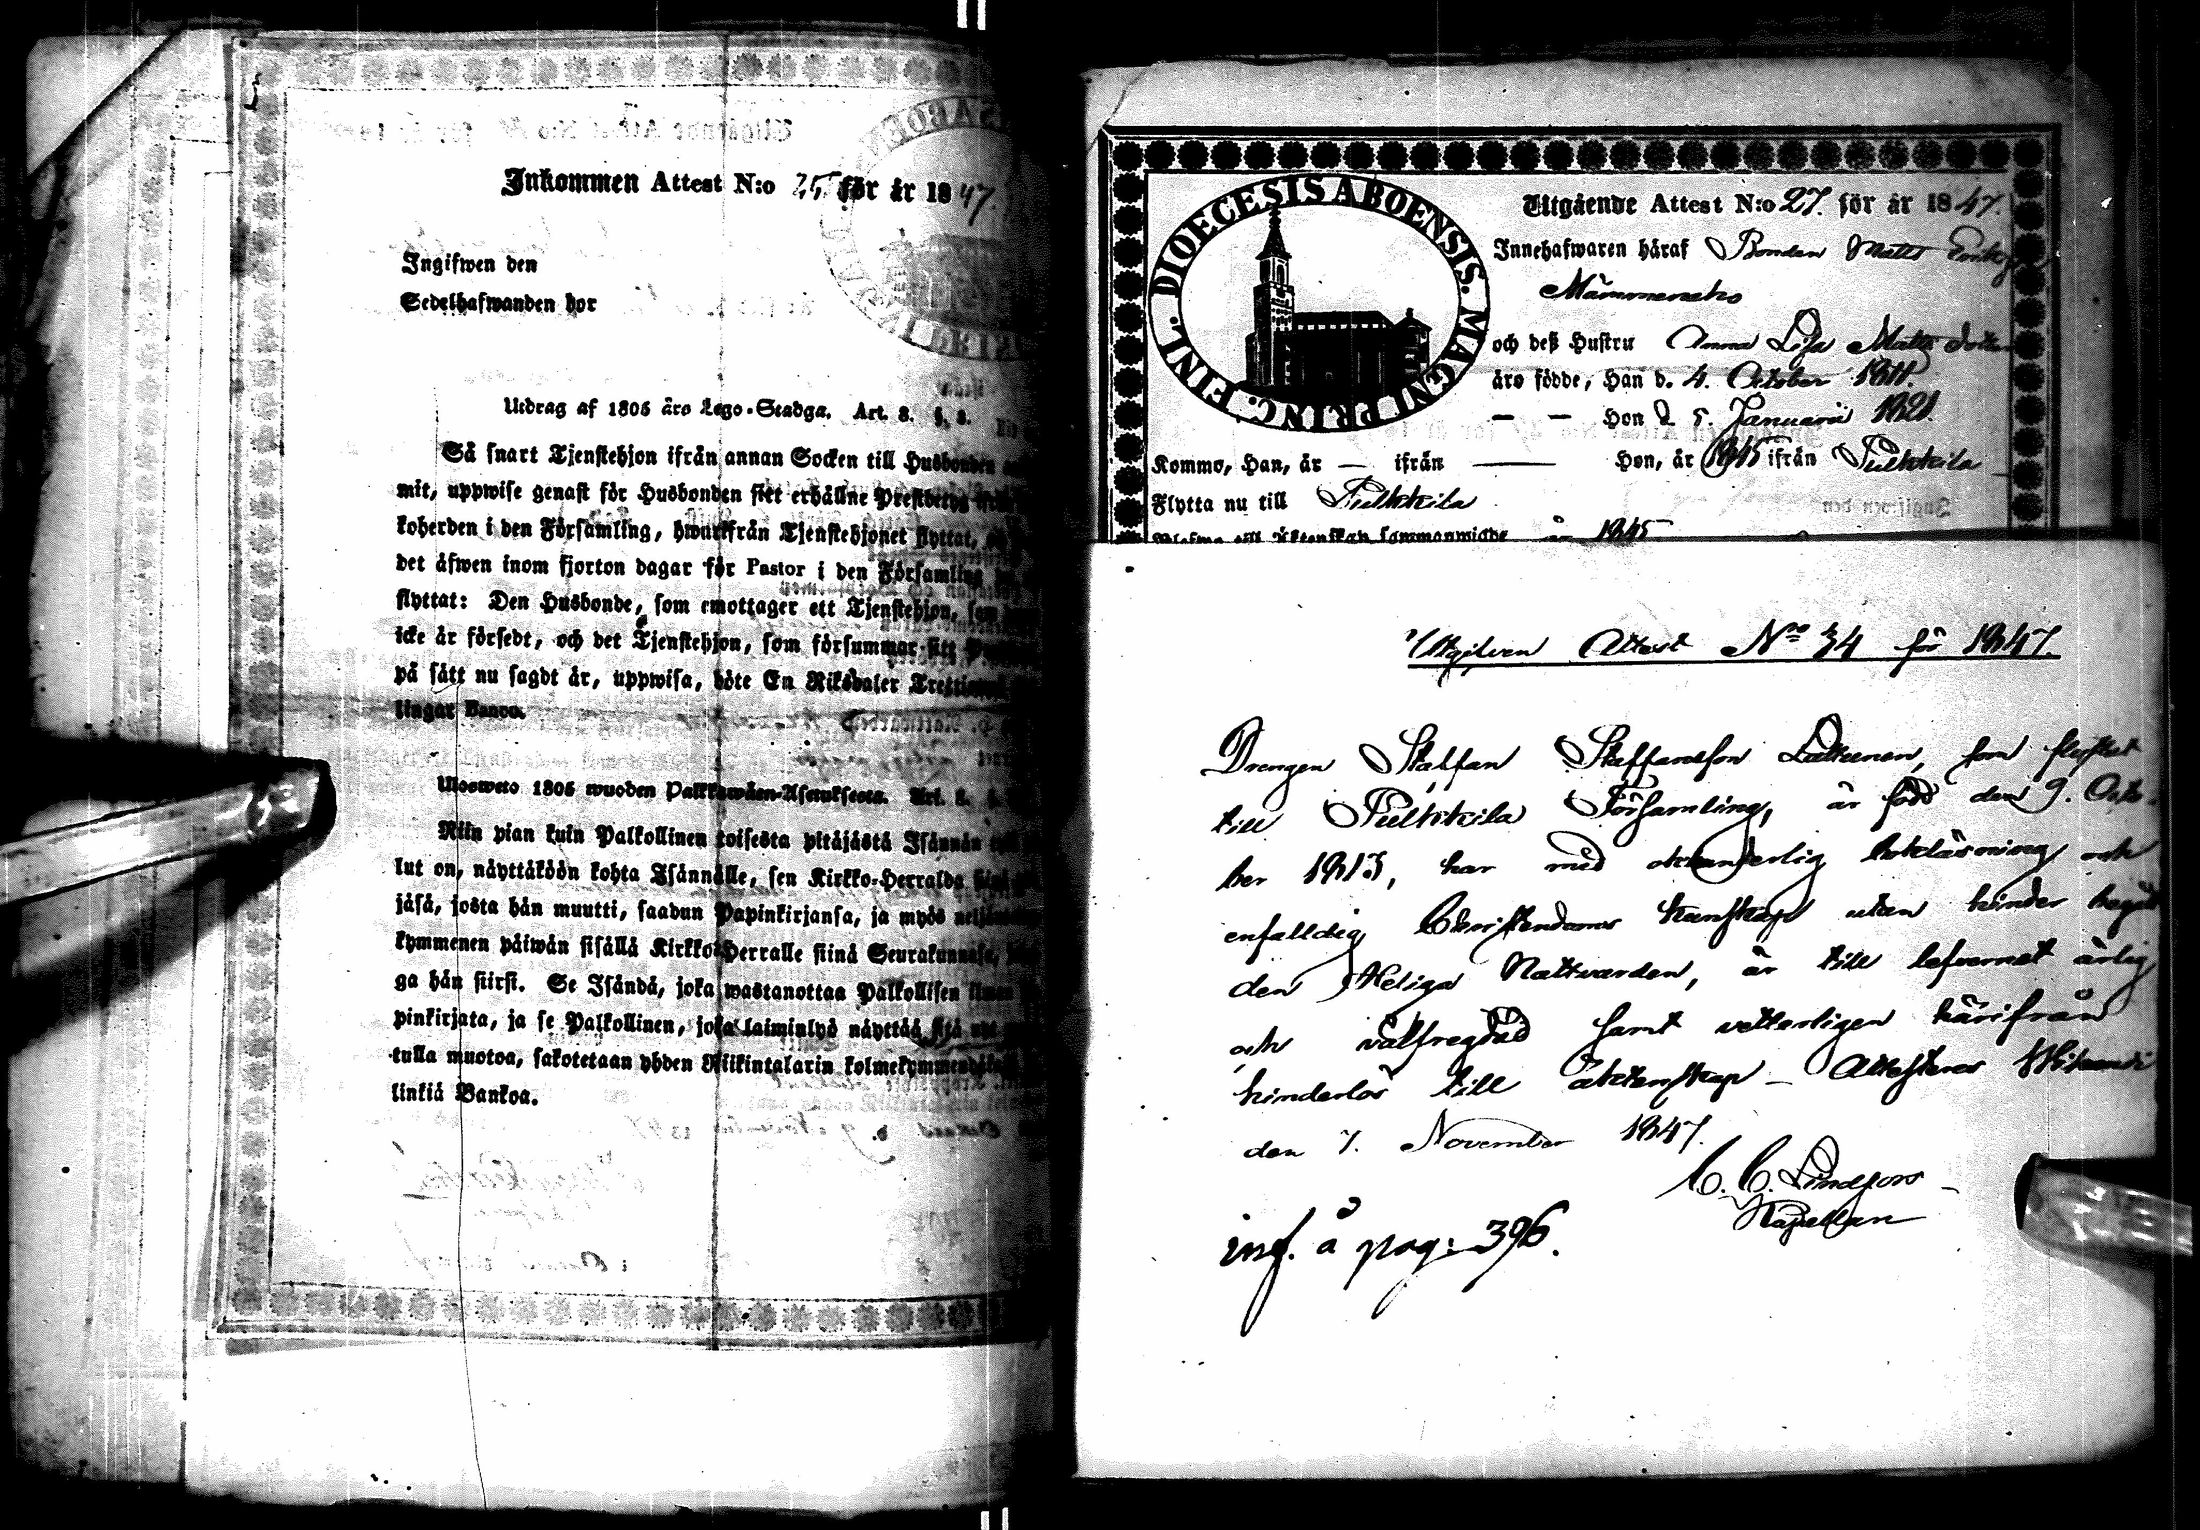 Inkommen Attest N:o 25 för år 1847.
Ingifwen den
Sedelhafwanden bor
Utdrag af 1805 års Lego-Stadga. Art. 8. §. 8.
Så snart Tjenstehjon ifrån annan Socken till Husbonden
mit, uppwise genast för Husbonden sitt erhållne Prestbetyg
koherden i den Församling, hwarifrån Tjenstehjonet flyttat,
det äfwen inom fjorton dagar för Pastor i den Församling
flyttat: Den Husbonde, som emottager ett Tjenstehjon, som
icke är försedt, och det Tjenstehjon, som försummar sitt
på sätt nu sagdt är, uppwisa, böte En Riksdaler Trettio
lingar Banco.
Ulosweto 1805 wuoden Palkkawäen-Asetuksesta. Art. 8. §.
Niin pian kuin Palkollinen toisesta pitäjästä Isännän
lut on, näyttäköön kohta Isännälle, sen Kirkko-Herralda
jäsä, josta hän muutti, saadun Papinkirjansa, ja myös
kymmenen päiwän sisällä Kirkko-Herralle siinä Seurakunnasa,
ga hän siirsi. Se Isändä, joka wastanottaa Palkollisen ilman
pinkirjata, ja se Palkollinen, joka laiminlyö näyttää sitä
tulla muotoa, sakotetaan yhden Riikintalarin kolmekymmendä
linkiä Bankoa.
DIOECESIS ABOENSIS. MAGNI PRINC. FINL.
Utgående Attest N:o 27. för år 1847.
Innehafwaren häraf Bonden Matts
Mämmeneho
och deß Hustru Anna Lisa Matts dotter
äro födde, Han d. 4. October 1811.
— — Hon d 5. Januarii 1821.
Kommo, Han, är — ifrån — Hon, år 1845 ifrån Pulkkila
Flytta nu till Pulkkila
till Äktenskap sammanwigde år 1845
Utgifven Attest No 34 för 1847.
Drengen Staffan Staffansson Lattunen, som flyttat
till Pulkkila Församling, är född den 9. Octo-
ber 1813, har med oklanderlig bokläsning och
enfalldig Christendoms kunskap utan hinder begått
den Heliga Nattvarden, är till lefvernet ärlig
och välfregdad samt vetterligen härifrån
hinderlös till äktenskap — Attesteras
den 7. November 1847.
C. C. Lindfors
Kapellan
inf. å pag: 396.